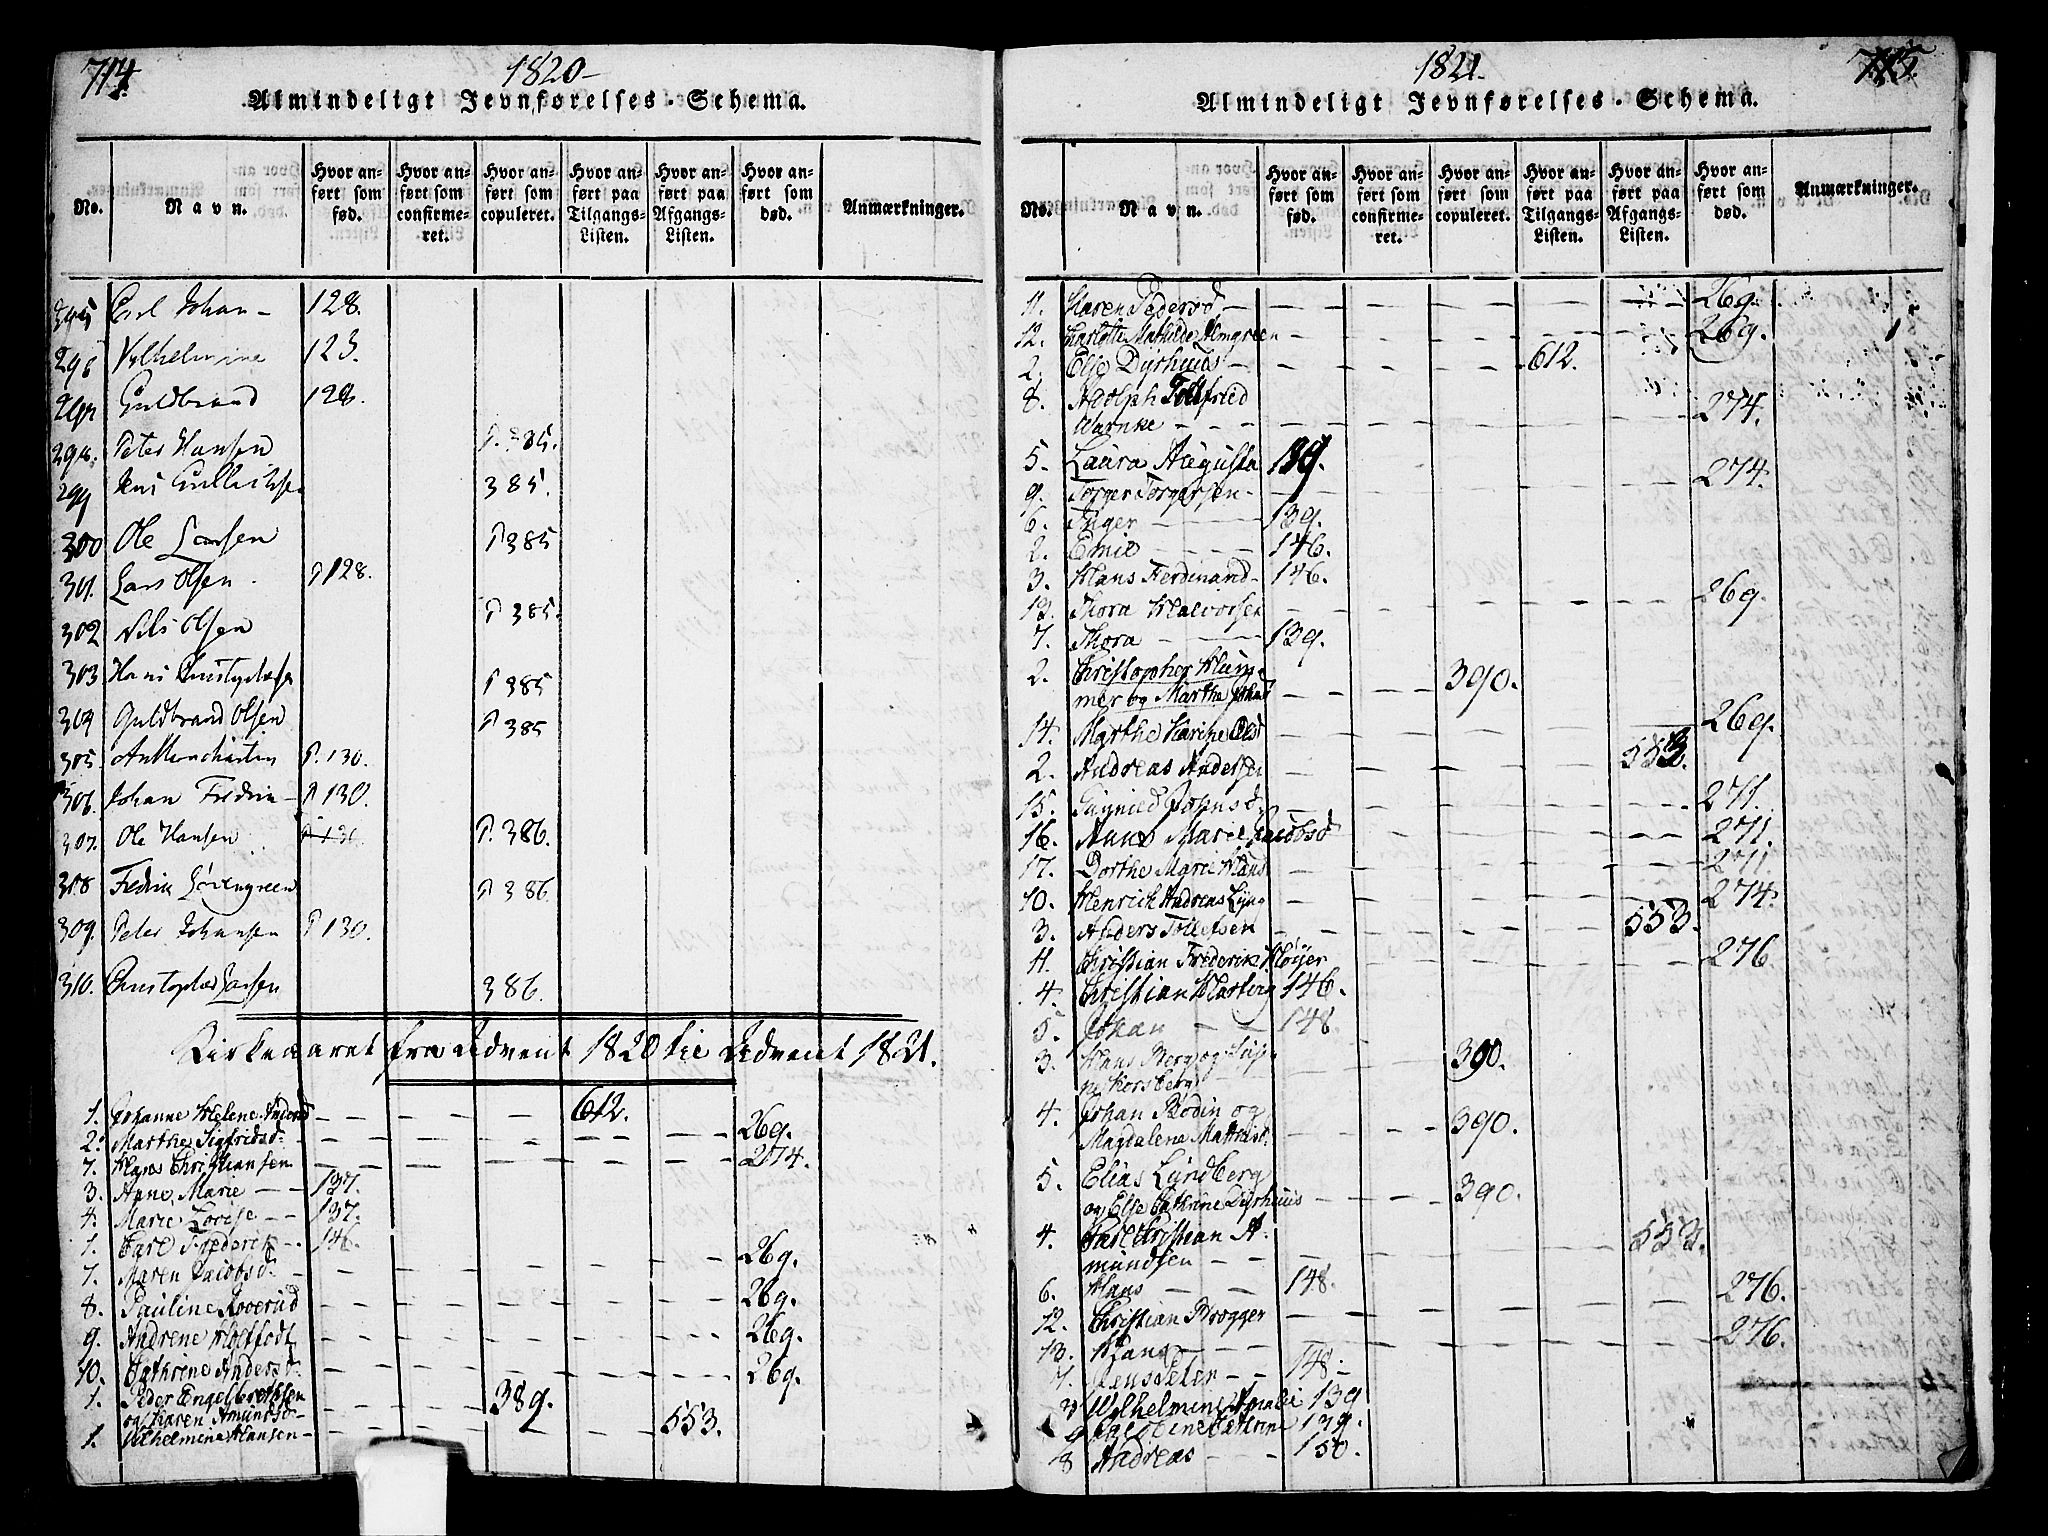 714.
1820-
Almindeligt Jevnførelses-Schema.
No.
Navn.
Hvor anført som fød.
Hvor anført som confirmeret.
Hvor anført som copuleret.
Hvor anført paa Tilgangs-Listen.
Hvor anført paa Afgangs-Listen.
Hvor anført som død.
Anmærkninger.
295 Carl Johan - 128.
296 Vilhelmine 123.
297 Guldbrand 128.
298. Peter Hansen P. 385.
299 385.
300 Ole Larsen P 385
301. Lars Olsen. P 128.
302 Nils Olsen P 385.
303 Hans P 385
304 Guldbrand Olsen P 385
305. P. 130.
306. Johan Fredrik - P 130.
307. Ole Hansen P 130 P. 386.
308 Fredrik P 386
309. Peter Johansen P 130.
310. Christopher Larsen 386.
Kirkeaaret fra Advent 1820 til Advent 1821.
1. Johanne Helene Andersd 612.
2. Marthe Sigfridsd. 269.
7. Hans Christiansen 274.
3. Anne Marie 137.
4. Marie Lovise 137.
1. Carl Frederik 146.
7. Maren Jacobsd. 269.
8. Pauline Roverud 269.
9. Andrene Holtfodt 269.
10. Cathrine Andersd. 269.
1. Peder Engelbrethsen
og Karen Amundsd. 389.
1. Vilhelmine Hansen 553.
715.
1821.
Almindeligt Jevnførelses-Schema.
No.
Navn.
Hvor anført som fød.
Hvor anført som confirmeret.
Hvor anført som copuleret.
Hvor anført paa Tilgangs-Listen.
Hvor anført paa Afgangs-Listen.
Hvor anført som død.
Anmærkninger.
11. Karen Pedersd. 269.
12. Charlotte Mathilde Almgreen 269.
2. Else Dyrhuus 612.
8. Adolph Totfried
Warnke 274.
5. Laura Augusta 139.
9. Torger Torgersen 274.
6. Inger 139.
2. Emil 146.
3. Hans Ferdinand 146.
13. Thora Halvorsen 269.
7. Thora 139.
2. Christopher Hummer og Marthe 390.
14. Marthe Karine Olsd 269.
2. Andreas Andersen 553.
15. Johnsd. 271.
16. Anne Marie Jacobsd 271.
17. Dorthe Marie Hans 271.
10. Henrich Andreas Lyng 274.
3. Anders Tollefsen 553.
11. Christian Frederik Kløyer 276
4. Christian Harberg 146.
5. Johan 148.
3. Hans Berg og 390.
4. Johan Bodin og
Magdalene 390.
5. Elias Lundberg
og Else Cathrine Dyrhuus 390.
4. Carl Christian Amundsen 553.
6. Hans 148.
12. Christian Brøgger 276.
13. Hans 276.
7. Jens Peter 148.
8 Vilhelmine Amalie 139
9 Cathrine 139.
8 Andreas 150.